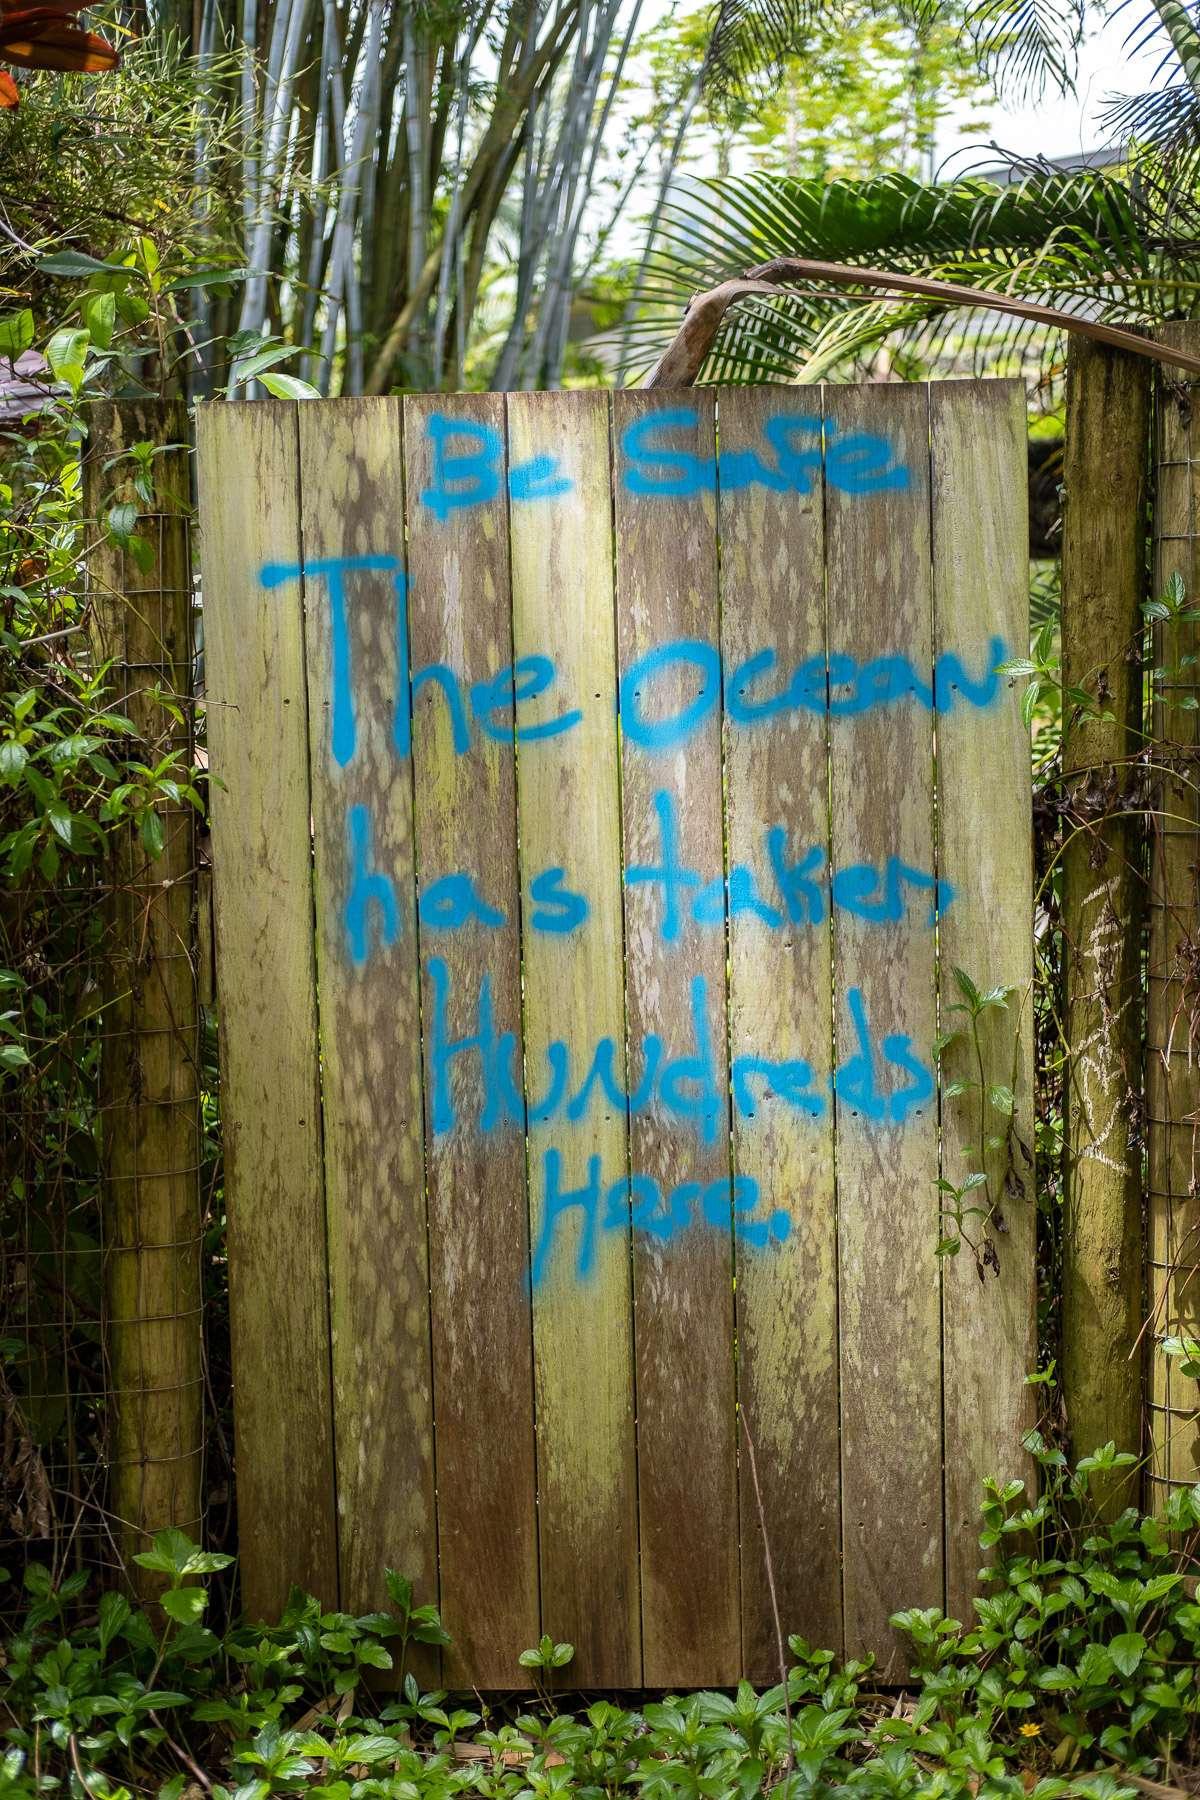 Be Safe
The Ocean
has taken
Hundreds
Here.